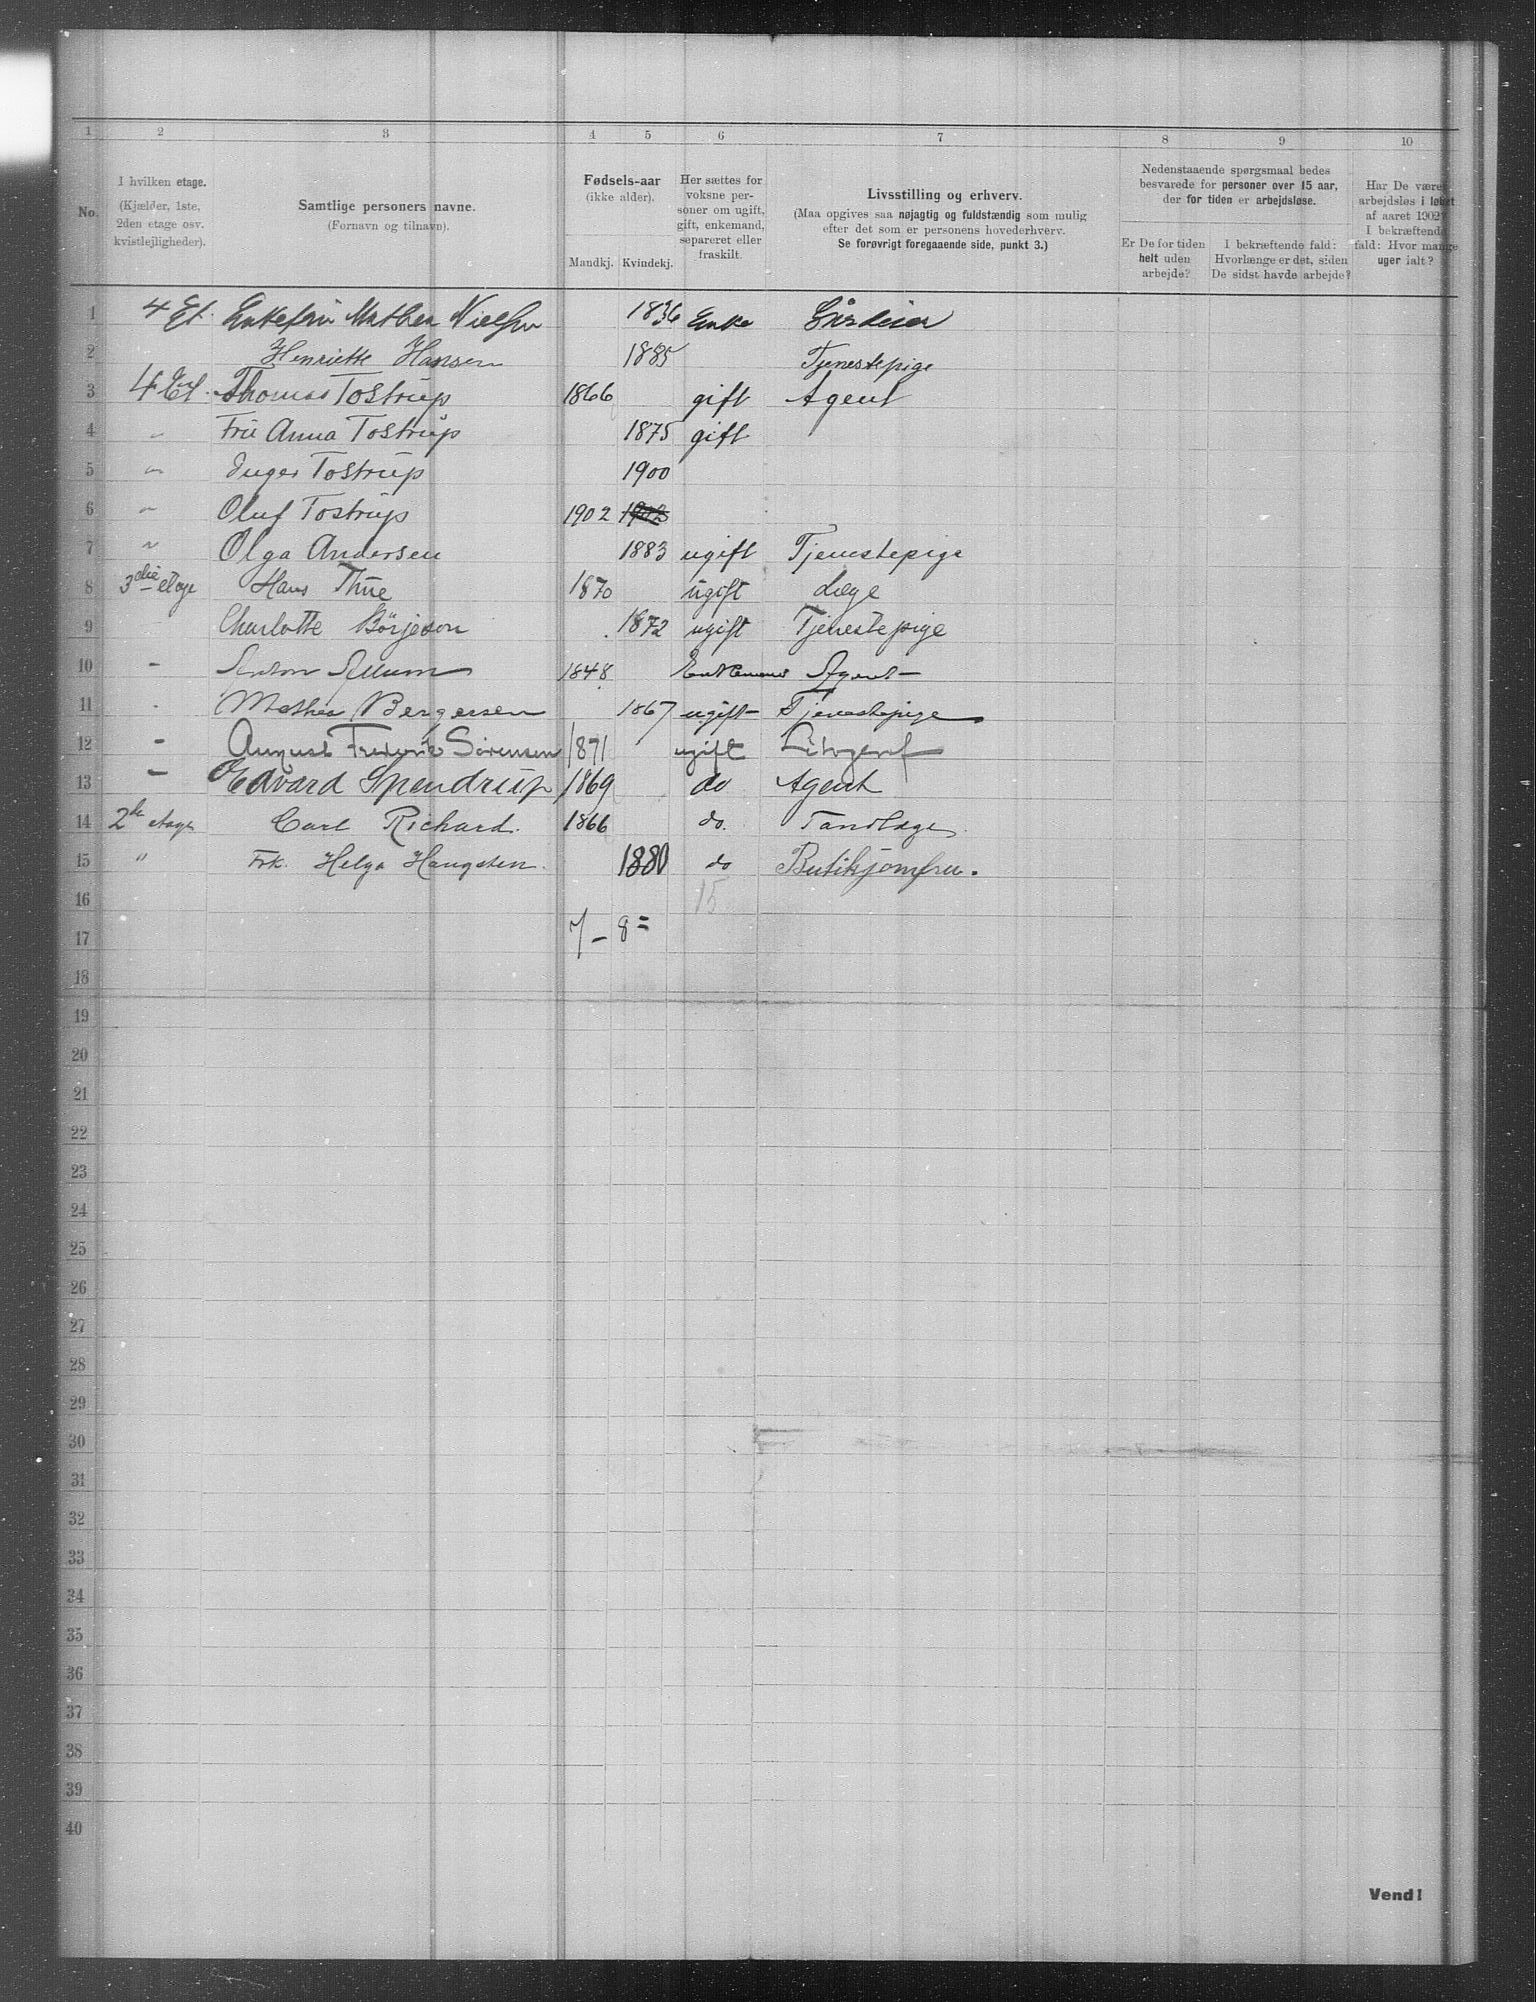 1 2 3 4 5 6 7 8 9 10
No.
I hvilken etage.
(Kjælder, 1ste,
2den etage osv.
kvistlejligheder).
Samtlige personers navne.
(Fornavn og tilnavn).
Fødsels-aar
(ikke alder).
Mandkj. Kvindekj.
Her sættes for
voksne per-
soner om ugift,
gift, enkemand,
separeret eller
fraskilt.
Livsstilling og erhverv.
(Maa opgives saa nøjagtig og fuldstændig som mulig
efter det som er personens hovederhverv.
Se forøvrigt foregaaende side, punkt 3.)
Nedenstaaende spørgsmaal bedes
besvarede for personer over 15 aar,
der for tiden er arbejdsløse.
Er De for tiden
helt uden
arbejde?
I bekræftende fald:
Hvorlænge er det, siden
De sidst havde arbejde?
Har De været
arbejdsløs i løbet
af aaret 1902?
I bekræftende
fald: Hvor mange
uger ialt?
1 4 Et. Enkefru Mathea Nielsen 1836 Enke
2 Henriette Hansen 1885 Tjenestepige
3 4 Et. Thomas Tostrup 1866 gift Agent
4 " Fru Anna Tostrup 1875 gift
5 " Inger Tostrup 1900
6 " Oluf Tostrup 1902 1902
7 " Olga Andersen 1883 ugift Tjenestepige
8 3die etage Hans Thue 1870 ugift Læge
9 Charlotte Börjeson 1872 ugift Tjenestepige
10 - Anton 1848 Enkemand Agent
11 - Mathea Bergersen 1867 ugift Tjenestepige
12 - August Frederik Sørensen 1871 ugift Litograf
13 - Edvard Spendrup 1869 do Agent
14 2de etage Carl Richard. 1866 do. Tandlæge.
15 " Frk. Helga Haugsten. 1880 do Butikjomfru.
16 15
17 7 - 8 =
18
19
20
21
22
23
24
25
26
27
28
29
30
31
32
33
34
35
36
37
38
39
40
Vend!